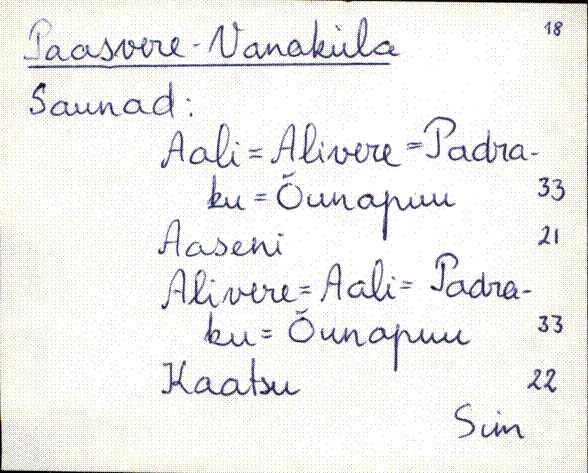 18
Paasvere-Vanaküla
Saunad:
Aali = Alivere = Padra-
ku = Õunapuu 33
Aaseni 21
Alivere = Aali = Padra-
ku = Õunapuu 33
Kaatsu 22
Sim